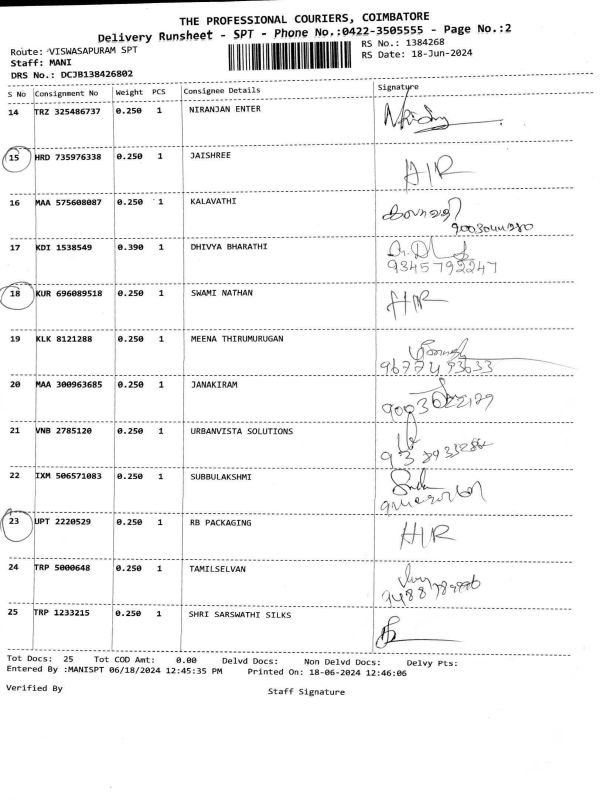 THE PROFESSIONAL COURIERS, COIMBATORE
Delivery Runsheet - SPT - Phone No.:0422-3505555 - Page No.:2
Route: VISWASAPURAM SPT
RS No.: 1384268
Staff: MANI
RS Date: 18-Jun-2024
DRS No.: DCJB138426802
S No Consignment No Weight PCS Consignee Details Signature
14 TRZ 325486737 0.250 1 NIRANJAN ENTER
15 HRD 735976338 0.250 1 JAISHREE
16 MAA 575608087 0.250 1 KALAVATHI
17 KDI 1538549 0.390 1 DHIVYA BHARATHI
9345792247
18 KUR 696089518 0.250 1 SWAMI NATHAN
19 KLK 8121288 0.250 1 MEENA THIRUMURUGAN
20 MAA 300963685 0.250 1 JANAKIRAM
21 VNB 2785120 0.250 1 URBANVISTA SOLUTIONS
22 IXM 506571083 0.250 1 SUBBULAKSHMI
23 UPT 2220529 0.250 1 RB PACKAGING
24 TRP 5000648 0.250 1 TAMILSELVAN
25 TRP 1233215 0.250 1 SHRI SARSWATHI SILKS
Tot Docs: 25 Tot COD Amt: 0.00 Delvd Docs: Non Delvd Docs: Delvy Pts:
Entered By :MANISPT 06/18/2024 12:45:35 PM Printed On: 18-06-2024 12:46:06
Verified By Staff Signature